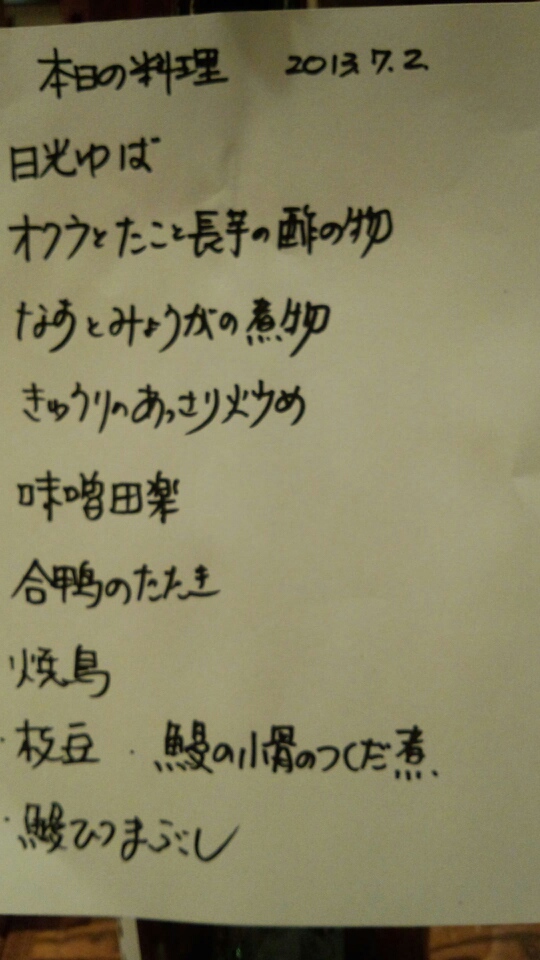 本日の料理 2013.7.2.
日光ゆば
オクラとたこと長芋の酢の物
なすとみょうがの煮物
きゅうりのあっさり炒め
味噌田楽
合鴨のたたき
焼鳥
・枝豆 ・鰻の小骨のつくだ煮
・鰻ひつまぶし